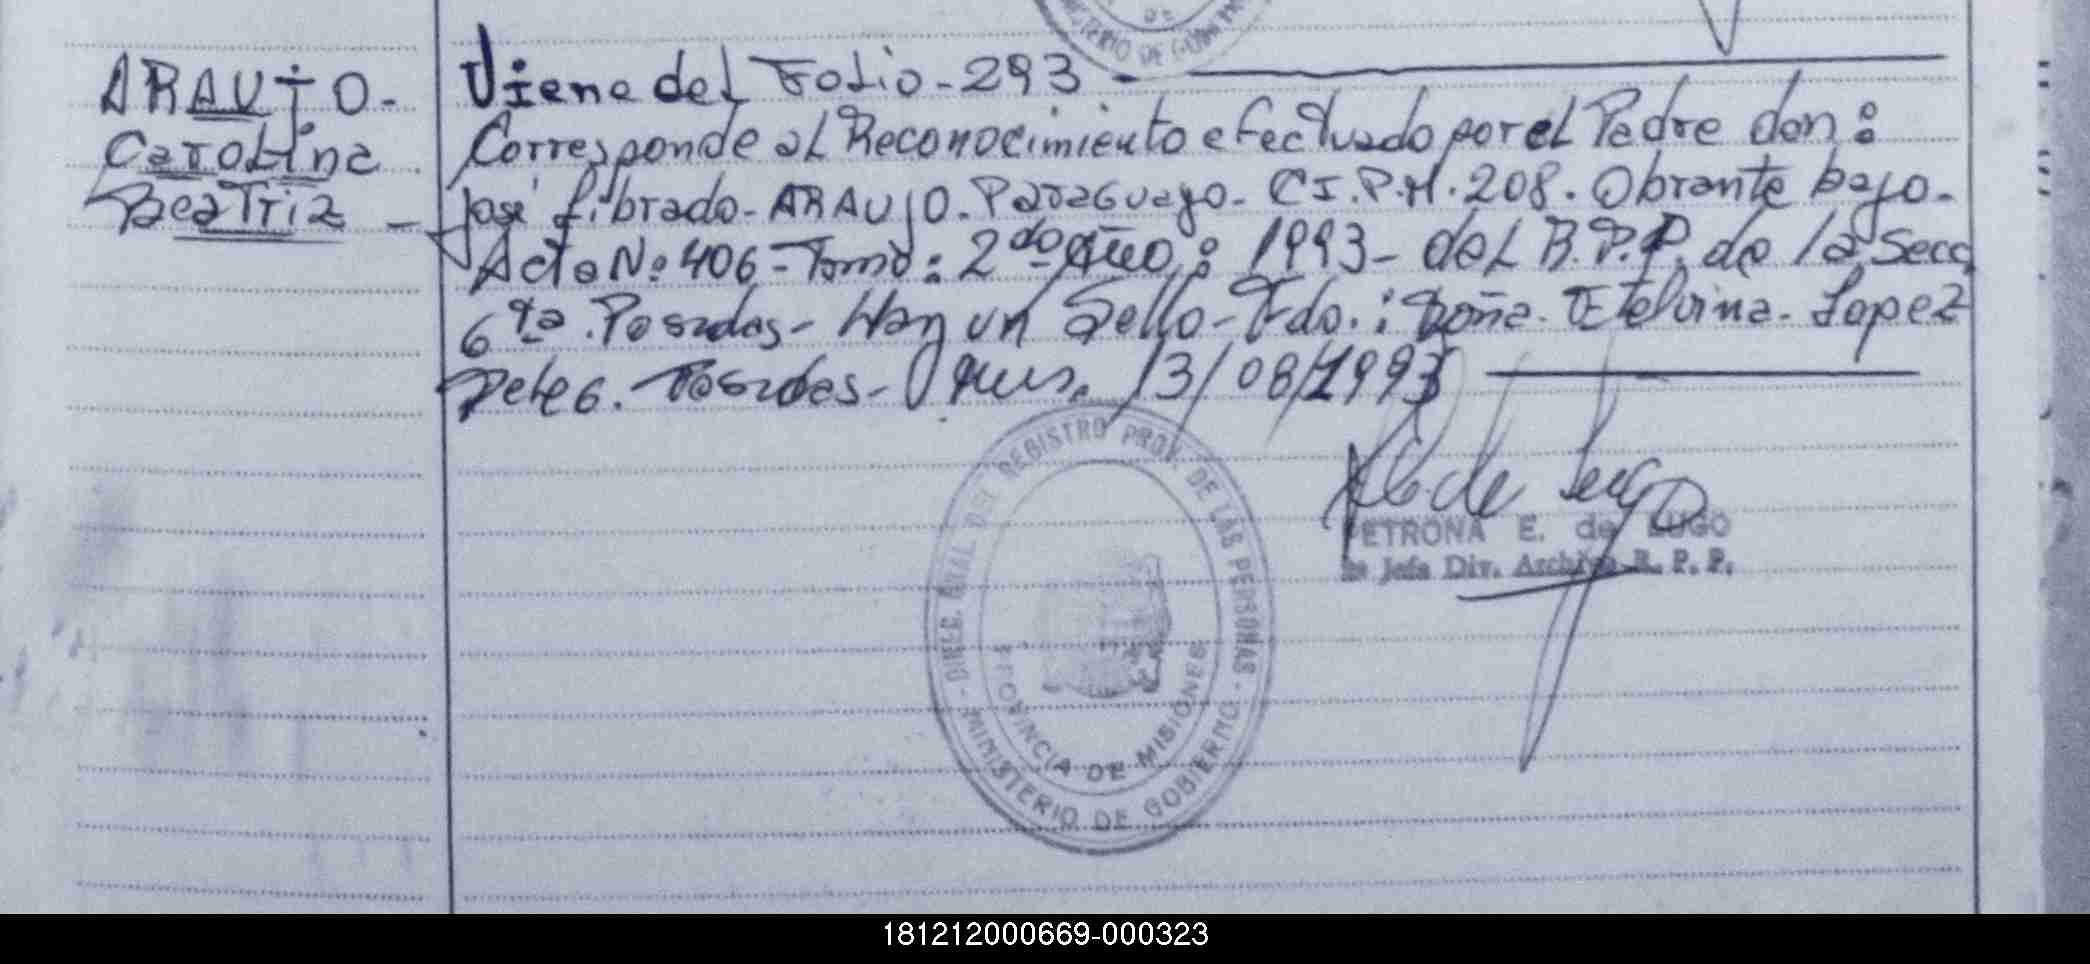 ARAUJO-
Carolina
Beatriz -
Viene del Folio - 293
Corresponde al Reconocimiento efectuado por el Padre don:
José Librado - ARAUJO. Paraguayo - CI.P.M. 208. Obrante bajo -
Acta Nº 406 - Tomo: 2do Año: 1993 - del B.P.P. de la Secc
6ta. Posadas - Hay un Sello - Fdo.: Doña. Etelvina - Lopez
Deleg. Posadas - Mnes. 13/08/1993
DIREC. GRAL DEL REGISTRO PROV. DE LAS PERSONAS -
MINISTERIO DE GOBIERNO
PROVINCIA DE MISIONES
PETRONA E. de LUGO
Jefa Div. Archivo R. P. P.
181212000669-000323